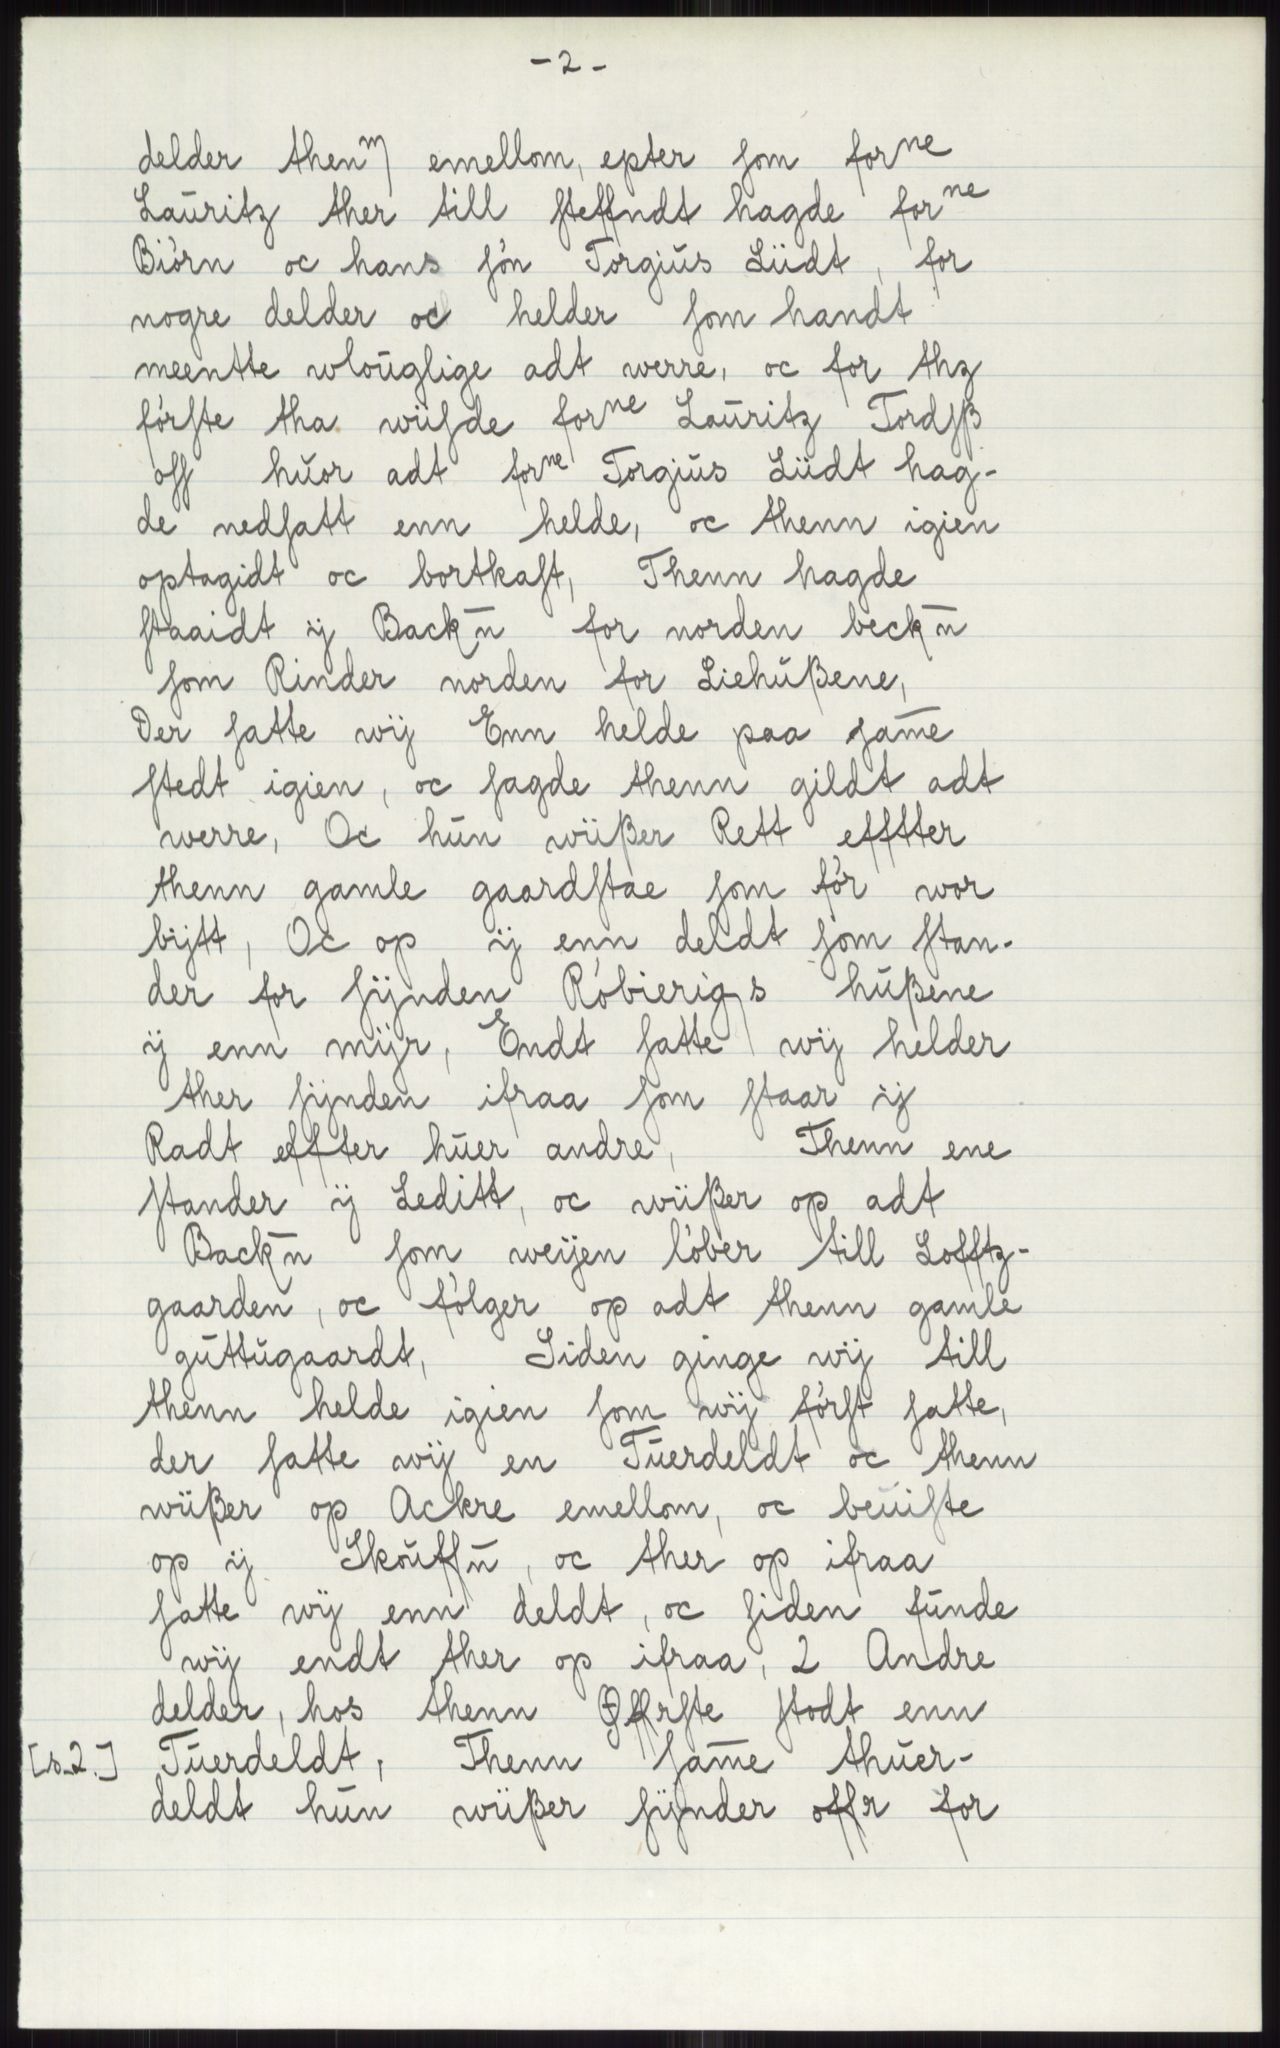 - 2 -
delder thenm emellom, epter som forne
Laůritz ther till steffndt hagde forne
Biörn oc hans sön Torgiůs Liidt, for
nogre delder oc helder som handt
meentte wloůglige adt werre, oc for thz
förste tha wiisde forne Laůritz Tordsß
oss hůor adt forne Torgiůs Liidt hag-
de nedsatt enn helde, oc thenn igien
optagidt oc bortkast, Thenn hagde
staaidt ij Backn̄ for norden beckn̄
som Rinder norden for Liehůßene,
Der satte wij Enn helde paa sam̄e
stedt igien, oc sagde thenn gildt adt
werre, Oc hůn wiißer Rett efftter
thenn gamle gaardstae som för wor
bijtt, Oc op ij enn deldt som stan-
der for sijnden Röbierigs hůßene
ij enn mijr, Endt satte wij helder
ther sijnden ifraa som staar ij
Radt effter hůer andre, Thenn ene
stander ij Leditt, oc wiißer op adt
Backn̄ som weijen löber till Lofftz-
gaarden, oc fölger op adt thenn gamle
gůttůgaardt, Siden ginge wij till
thenn helde igien som wij först satte,
der satte wij en Tůerdeldt oc thenn
wiißer op Ackre emellom, oc beůiste
op ij Skoůffn̄, oc ther op ifraa
satte wij enn deldt, oc siden fůnde
wij endt ther op ifraa, 2 Andre
delder, hos thenn Øffrste stodt enn
[s.2.] Tůerdeldt, Thenn sam̄e thůer-
deldt hůn wiißer sijnder offr for